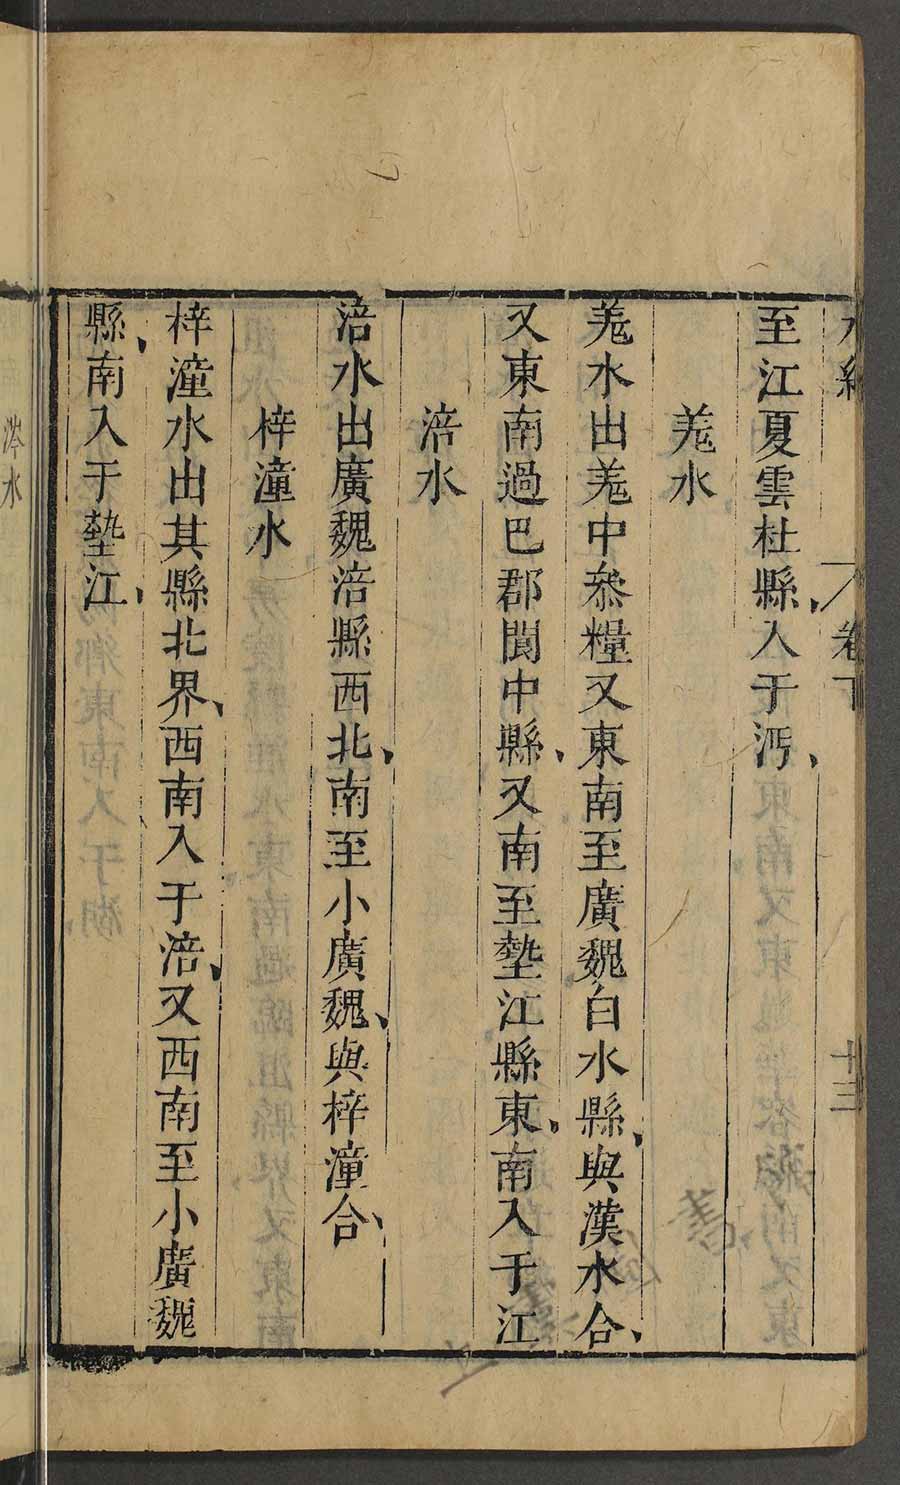 水經 卷下 十三
至江夏雲杜縣入于沔
羌水
羌水出羌中叅糧又東南至廣魏白水縣與漢水合
又東南過巴郡閬中縣又南至墊江縣東南入于江
涪水
涪水出廣魏涪縣西北南至小廣魏與梓潼合
梓潼水
梓潼水出其縣北界西南入于涪又西南至小廣魏
縣南入于墊江
涔水